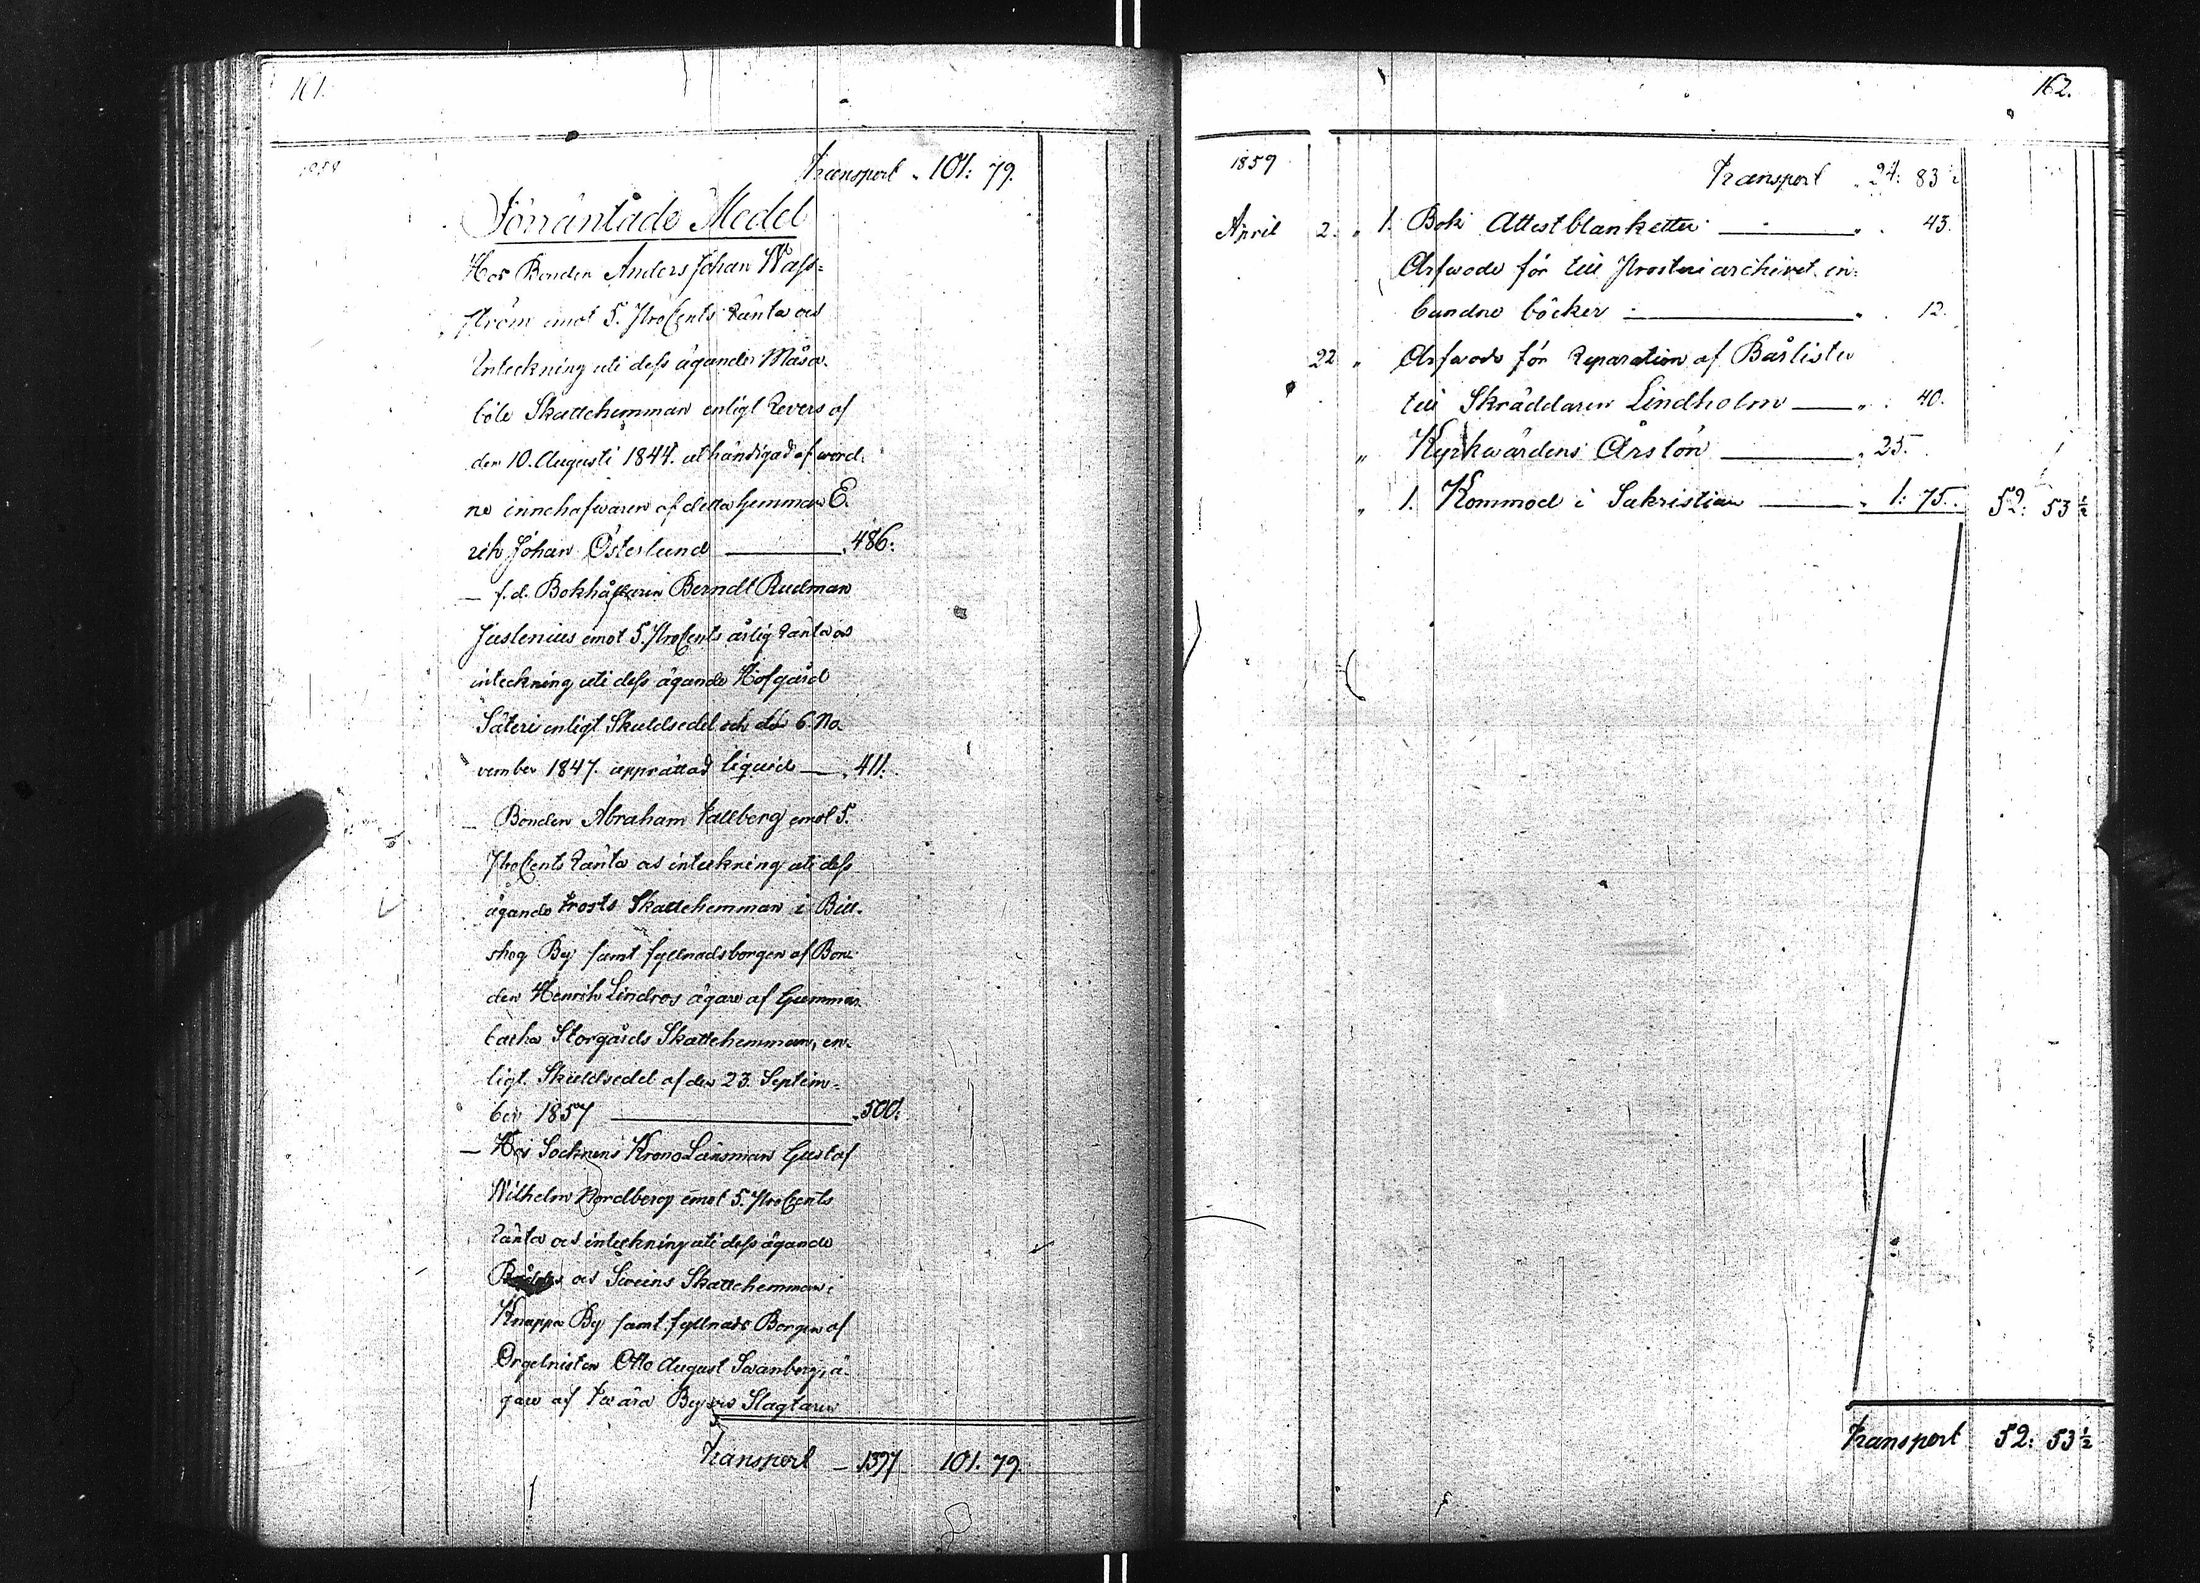 161.
1859
Transport " 101: 79.
Förräntade Medel
Hos Bonden Anders Johan Wass=
ström emot 5. ProCents Ränta och
Inteckning uti dess ägande Måsa-
böle Skattehemman enligt Revers af
den 10. Augusti 1844. uthändigad af nord.
ne innehafvaren af detta Hemman E.
rik Johan Österlund ——— " 486:
— f.d. Bokhållaren Berndt Rudman
Juslenius emot 5. ProCents årlig Ränta och
inteckning uti dess ägande Hofgård
Säteri enligt Skuldsedel och den 6. No
vember 1847. upprättad liquid — " 411:
— Bonden Abraham Fallberg emot 5.
ProCents Ränta och inteckning uti dess
ägande Frosts Skattehemman i Bill-
skog By samt fyllnadsborgen af Bon-
den Henrik Lindros ägare af Gumman
backa Storgårds Skattehemman, en-
ligt Skuldsedel af den 23. Septem=
ber 1857 ——— " 500:
— Hos Socknens KronoLänsman Gustaf
Wilhelm Nordberg emot 5. ProCents
Ränta och inteckning uti dess ägande
och Sweins Skattehemman i
Knappa By samt fyllnads Borgen af
Orgelnisten Otto August Swanberg, ä-
gare af Twärä Byens Slagtaren
Transport — 1397 101. 79.
162.
1859
Transport " 24: 83 ½
April 2. " 1. Bok Attestblanketter ——— " . 43.
Arfwode för till Prosteriarchivet in=
bundne böcker ——— " . 12.
22 " Arfwode för Reparation af Bårlister
till Skräddaren Lindholm — " . 40.
" Kyrkwärdens Årslön ——— " 25.
" 1. Kommod i Sakristian ——— " 1: 75. 52: 53 ½
Transport 52: 53 ½